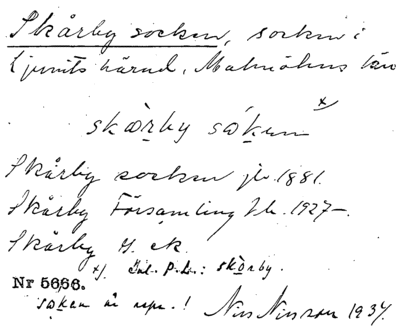 Skårby socken, socken i
Ljunits härad, Malmöhus län
x/
skɑ̀rby sɷkɛnn
Skårby socken jb. 1881.
Skårby Församling Jb. 1927–.
Skårby s. ek.
x/. Enl. P.L.: skɑ̀rby.
Nr 5666.
sɷkɛn är uppr. ! Nils Nilsson 1934.